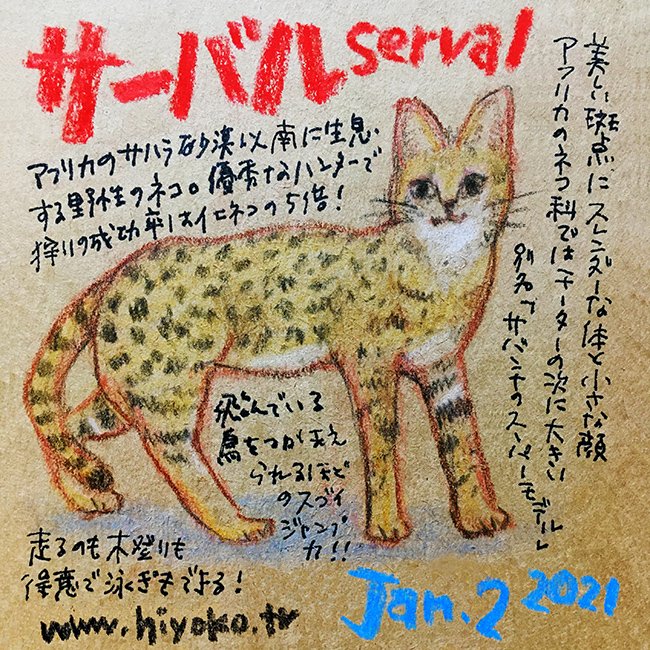 サーバル serval
アフリカのサハラ砂漠以南に生息
する野性のネコ。優秀なハンターで
狩りの成功率はイエネコの5倍!
美しい斑点にスレンダーな体と小さな顔
アフリカのネコ科ではチーターの次に大きい
別名「サバンナのスーパーモデル」
飛んでいる
鳥をつかまえ
られるほど
のスゴイ
ジャンプ
力!!
走るのも木登りも
得意で泳ぎもできる!
www.hiyoko.tv
Jan.2 2021